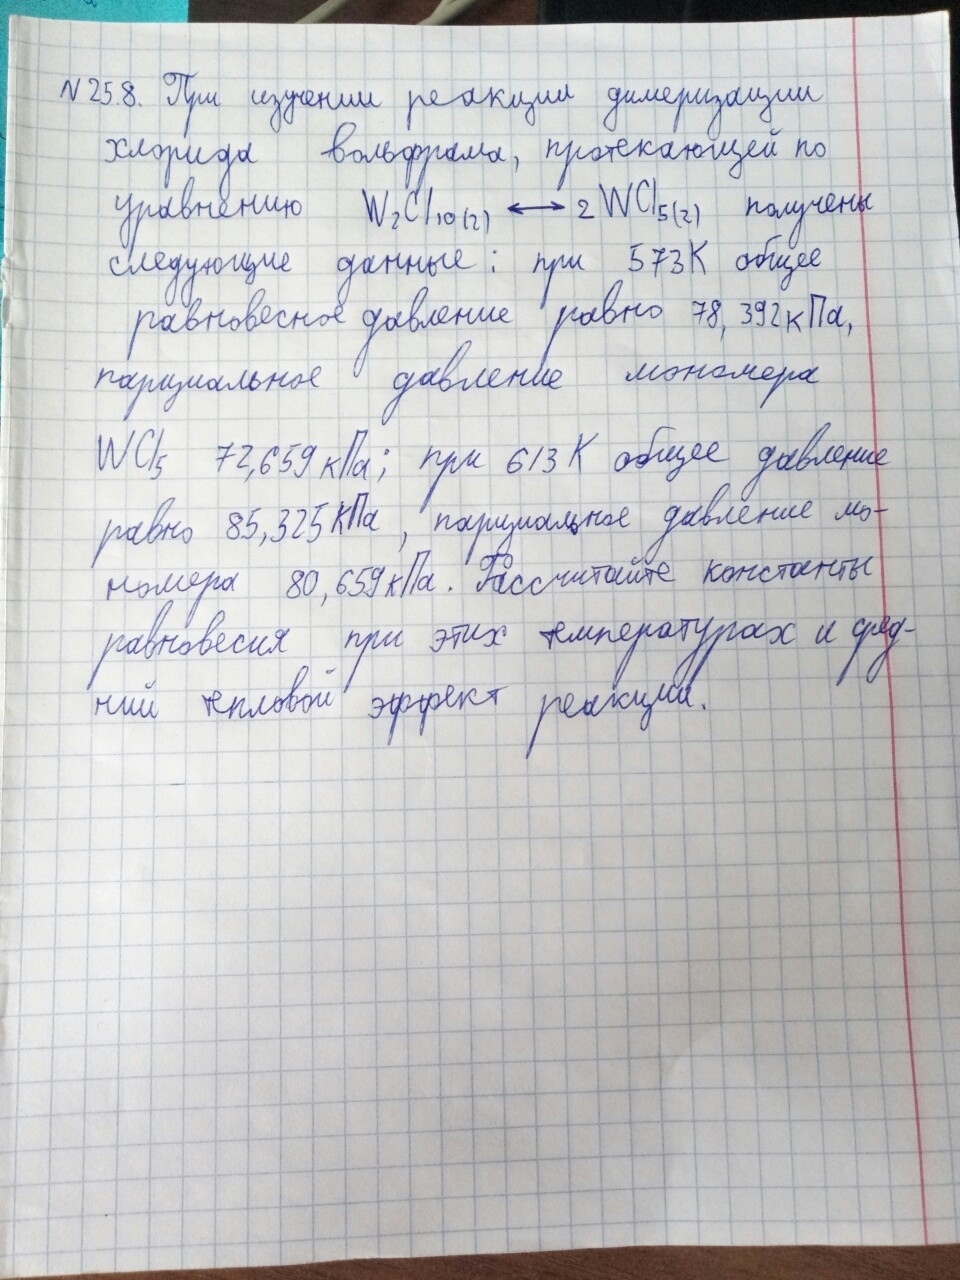 N 25.8. При изучении реакции димеризации
хлорида вольфрама, протекающей по
уравнению W₂Cl₁₀₍₂₎ ⟷ 2 WCl₅₍₂₎ получены
следующие данные: при 573К общее
равновесное давление равно 78,392кПа,
парциальное давление мономера
WCl₅ 72,659кПа; при 613К общее давление
равно 85,325кПа, парциальное давление мо-
номера 80,659кПа. Рассчитайте константы
равновесия при этих температурах и сред-
ний тепловой эффект реакции.